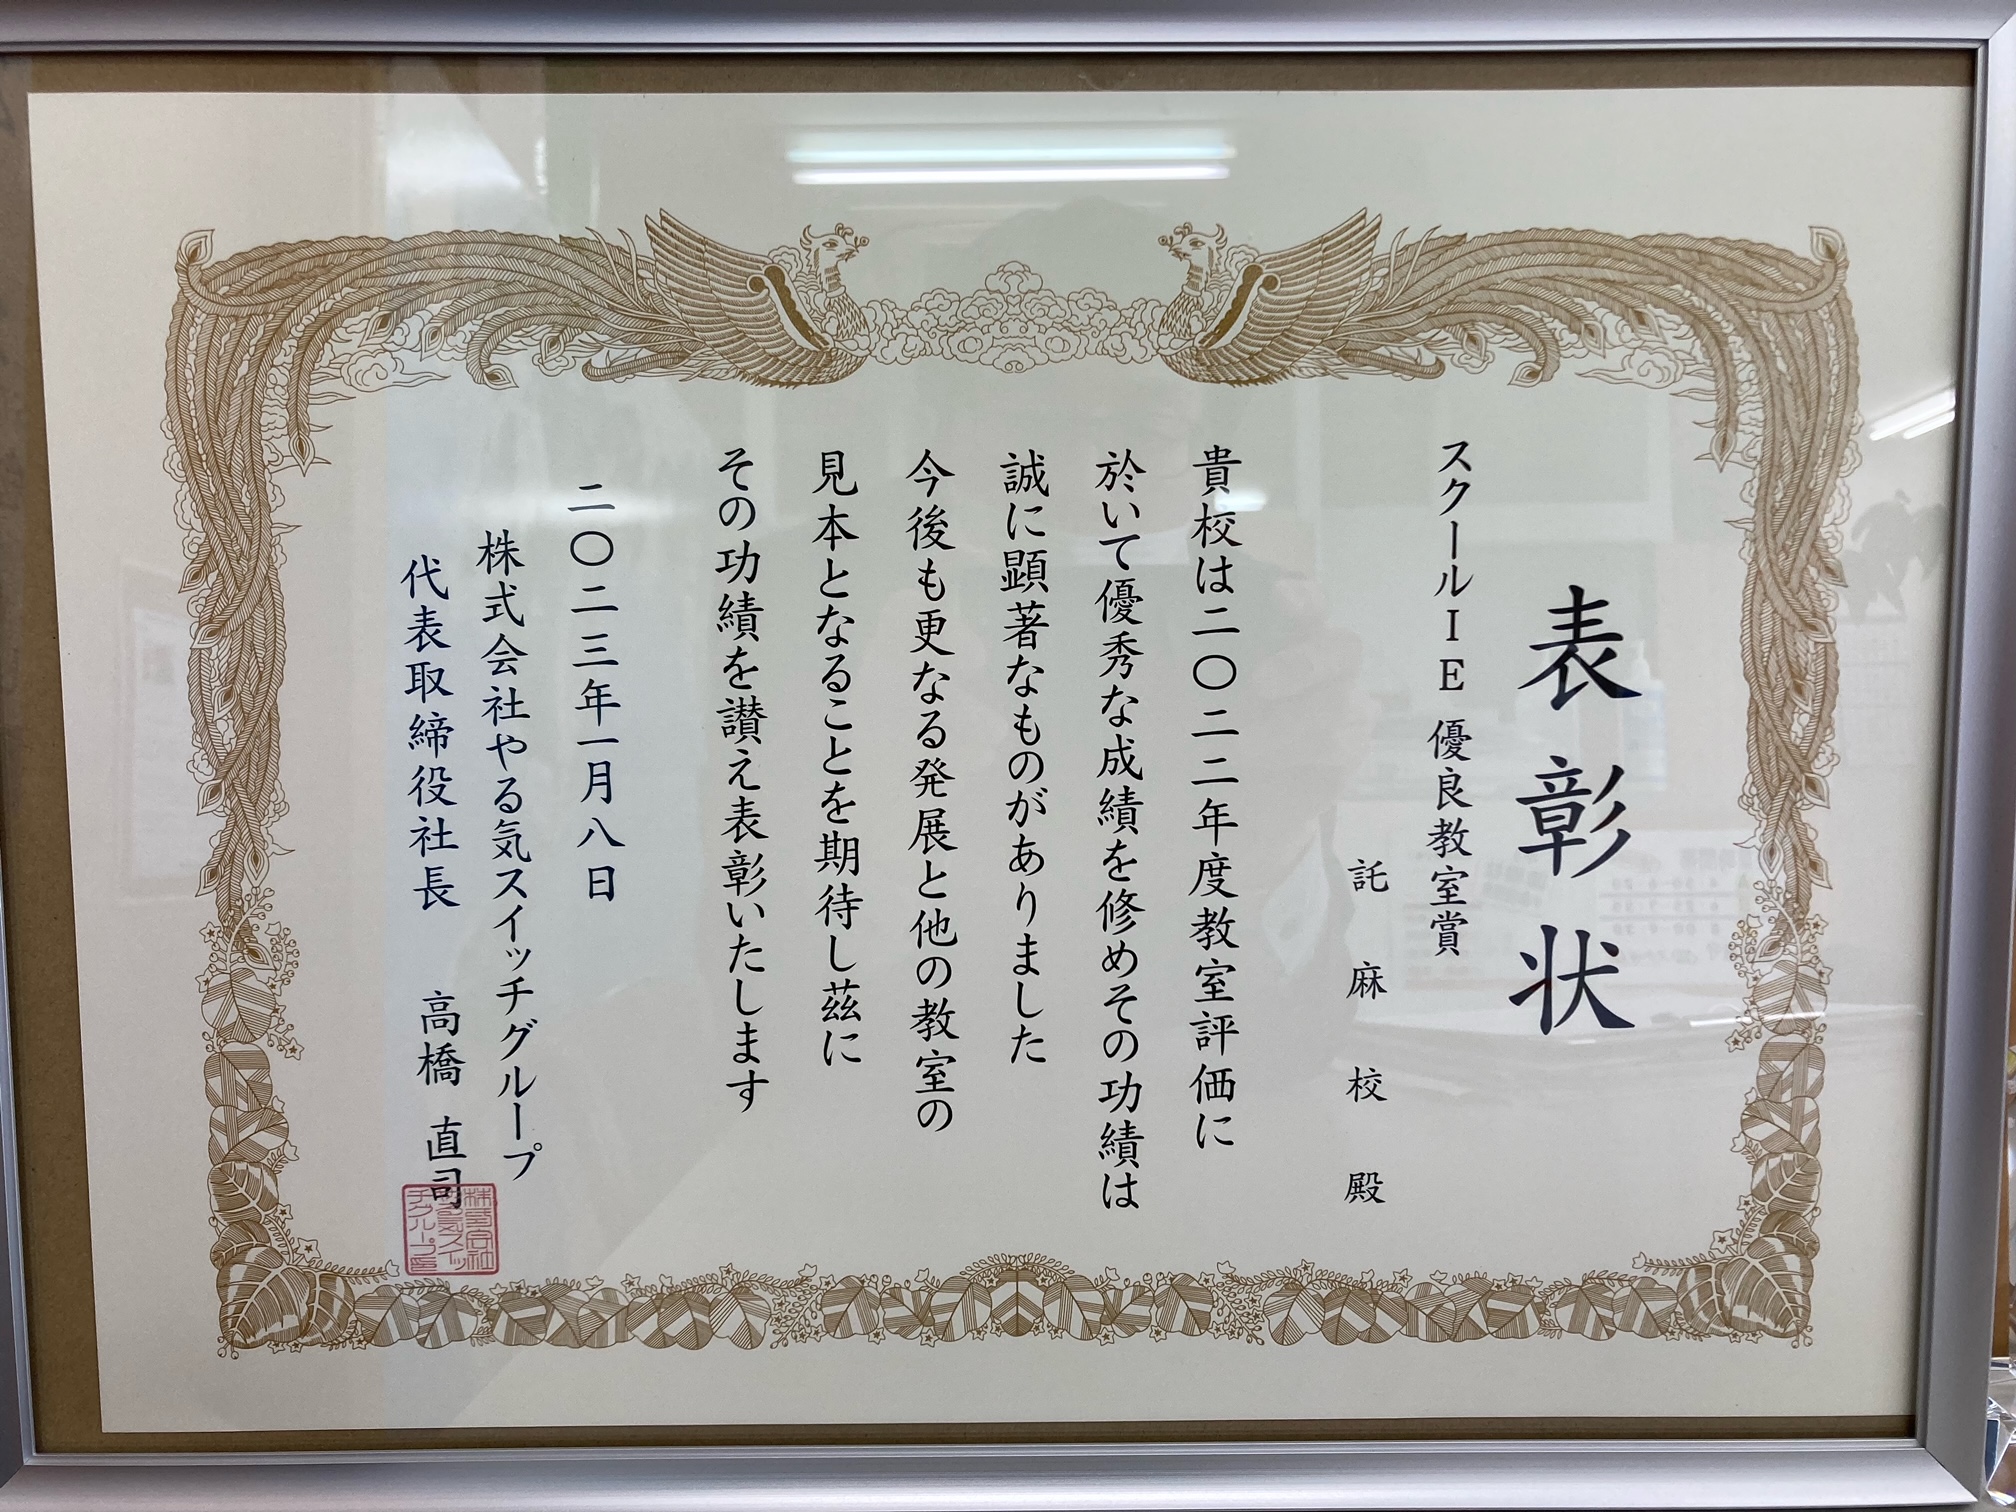 表彰状
スクールIE 優良教室賞
託麻校殿
貴校は二〇二二年度教室評価に
於いて優秀な成績を修めその功績は
誠に顕著なものがありました
今後も更なる発展と他の教室の
見本となることを期待し茲に
その功績を讃え表彰いたします
二〇二三年一月八日
株式会社やる気スイッチグループ
代表取締役社長 高橋 直司
株式会社
やる気スイッ
チグループ印